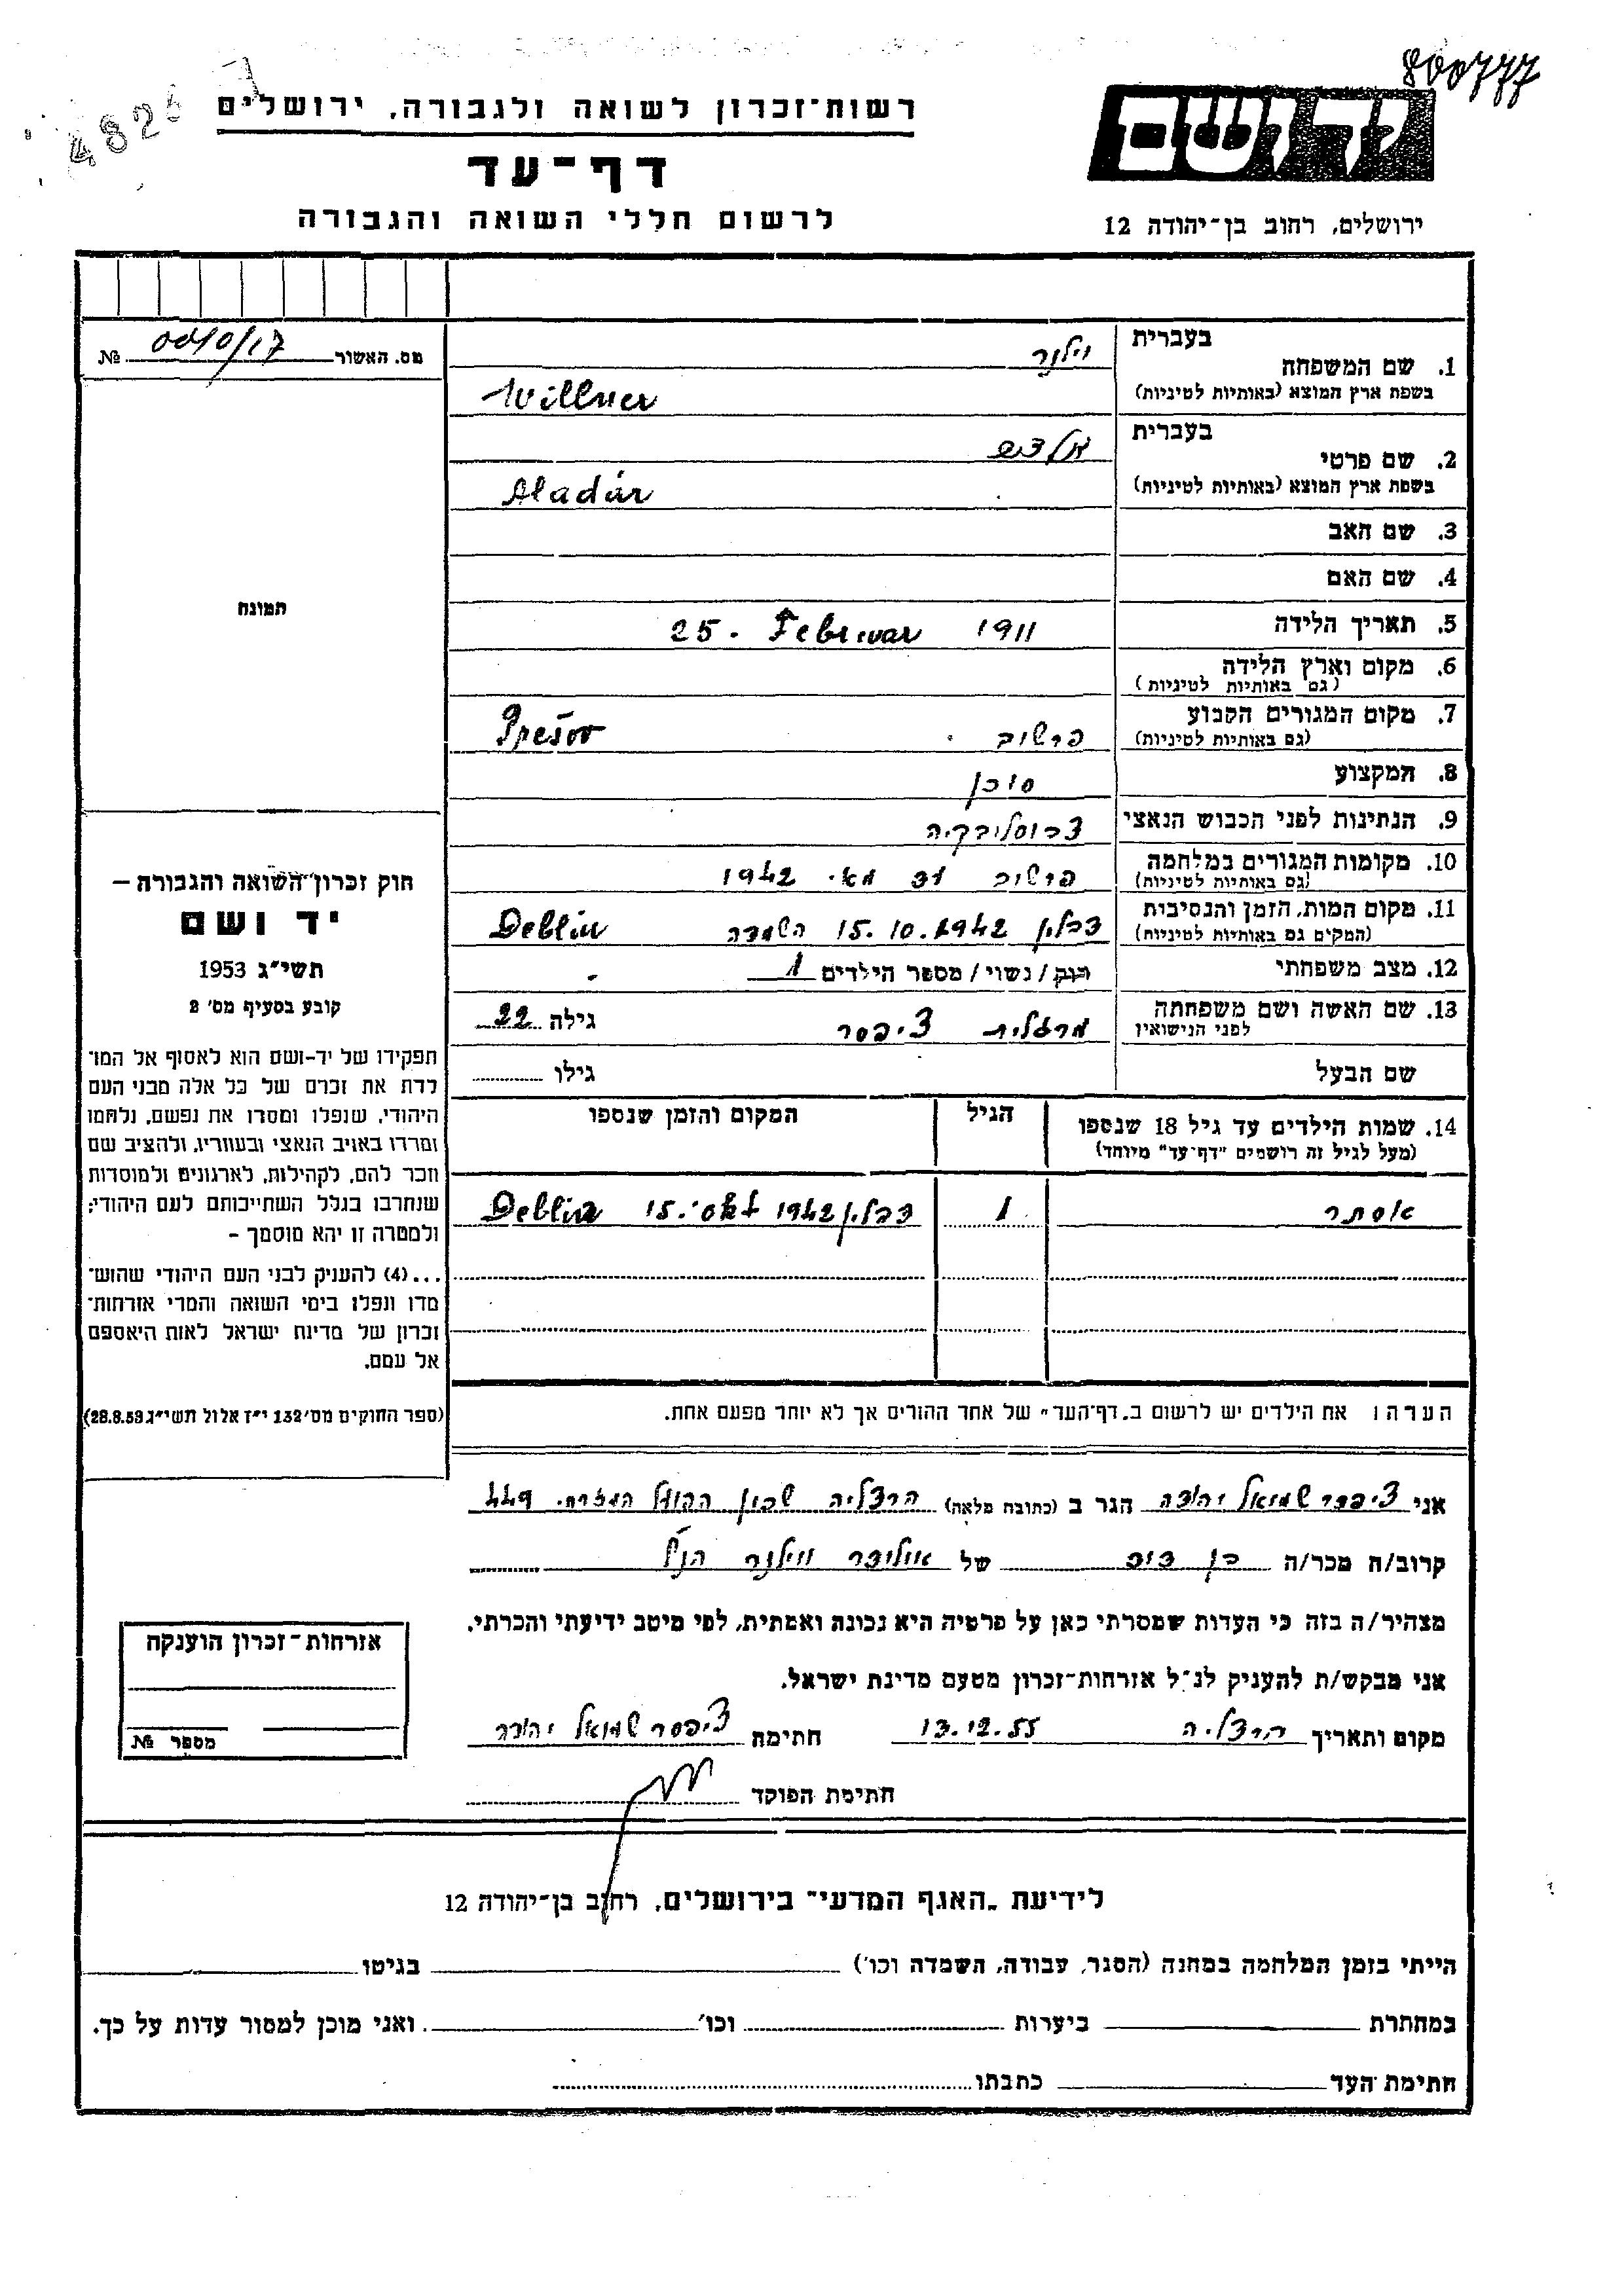 800777
רשות־זכרון לשואה ולגבורה, ירושלים
דף־עד
לרשום חללי השואה והגבורה
יד ושם
ירושלים, רחוב בן־יהודה 12
מס. האשור 0040/17 №
תמונה
חוק זכרון־השואה והגבורה —
יד ושם
תשי״ג 1953
קובע בסעיף מס׳ 2
תפקידו של יד-ושם הוא לאסוף אל המו־
לדת את זכרם של כל אלה מבני העם
היהודי, שנפלו ומסרו את נפשם, נלחמו
ומרדו באויב הנאצי ובעוזריו, ולהציב שם
וזכר להם, לקהילות, לארגונים ולמוסדות
שנחרבו בגלל השתייכותם לעם היהודי;
ולמטרה זו יהא מוסמך –
...(4) להעניק לבני העם היהודי שהוש־
מדו ונפלו בימי השואה והמרי אזרחות־
זכרון של מדינת ישראל לאות היאספם
אל עמם.
(ספר החוקים מס׳ 132 י״ז אלול תשי״ג 28.8.53)
1. שם המשפחה בעברית וילנר
בשפת ארץ המוצא (באותיות לטיניות) Willner
2. שם פרטי בעברית
בשפת ארץ המוצא (באותיות לטיניות) Aladár
3. שם האב
4. שם האם
5. תאריך הלידה 25. Februar 1911
6. מקום וארץ הלידה
(גם באותיות לטיניות)
7. מקום המגורים הקבוע פרשוב Prešov
(גם באותיות לטיניות)
8. המקצוע סוכן
9. הנתינות לפני הכבוש הנאצי צכוסלובקיה
10. מקומות המגורים במלחמה פרשוב עד מאי 1942
(גם באותיות לטיניות)
11. מקום המות, הזמן והנסיבות דבלין 15.10.1942 השמדה Deblin
(המקום גם באותיות לטיניות)
12. מצב משפחתי רוק / נשוי / מספר הילדים 1
13. שם האשה ושם משפחתה מרגלית ציפסר גילה 22
לפני הנישואין
שם הבעל גילו
14. שמות הילדים עד גיל 18 שנספו הגיל המקום והזמן שנספו
(מעל לגיל זה רושמים "דף־עד" מיוחד)
אסתר 1 דבלין 1942 15. Deblin
הערה: את הילדים יש לרשום ב„דף־העד״ של אחד ההורים אך לא יותר מפעם אחת.
אני ציפסר שמואל יהודה הגר ב (כתובת מלאה) הרצליה שכון הפועל המזרחי 449
קרוב/ה מכר/ה בן דוד של וילנר הנ״ל
מצהיר/ה בזה כי העדות שמסרתי כאן על פרטיה היא נכונה ואמתית, לפי מיטב ידיעתי והכרתי.
אני מבקש/ת להעניק לנ״ל אזרחות־זכרון מטעם מדינת ישראל.
מקום ותאריך הרצליה 13.12.55 חתימה ציפסר שמואל יהודה
חתימת הפוקד
אזרחות־זכרון הוענקה
מספר №
לידיעת „האגף המדעי״ בירושלים, רחוב בן־יהודה 12
הייתי בזמן המלחמה במחנה (הסגר, עבודה, השמדה וכו׳) בגיטו
במחתרת ביערות וכו׳ ואני מוכן למסור עדות על כך.
חתימת העד כתבתו